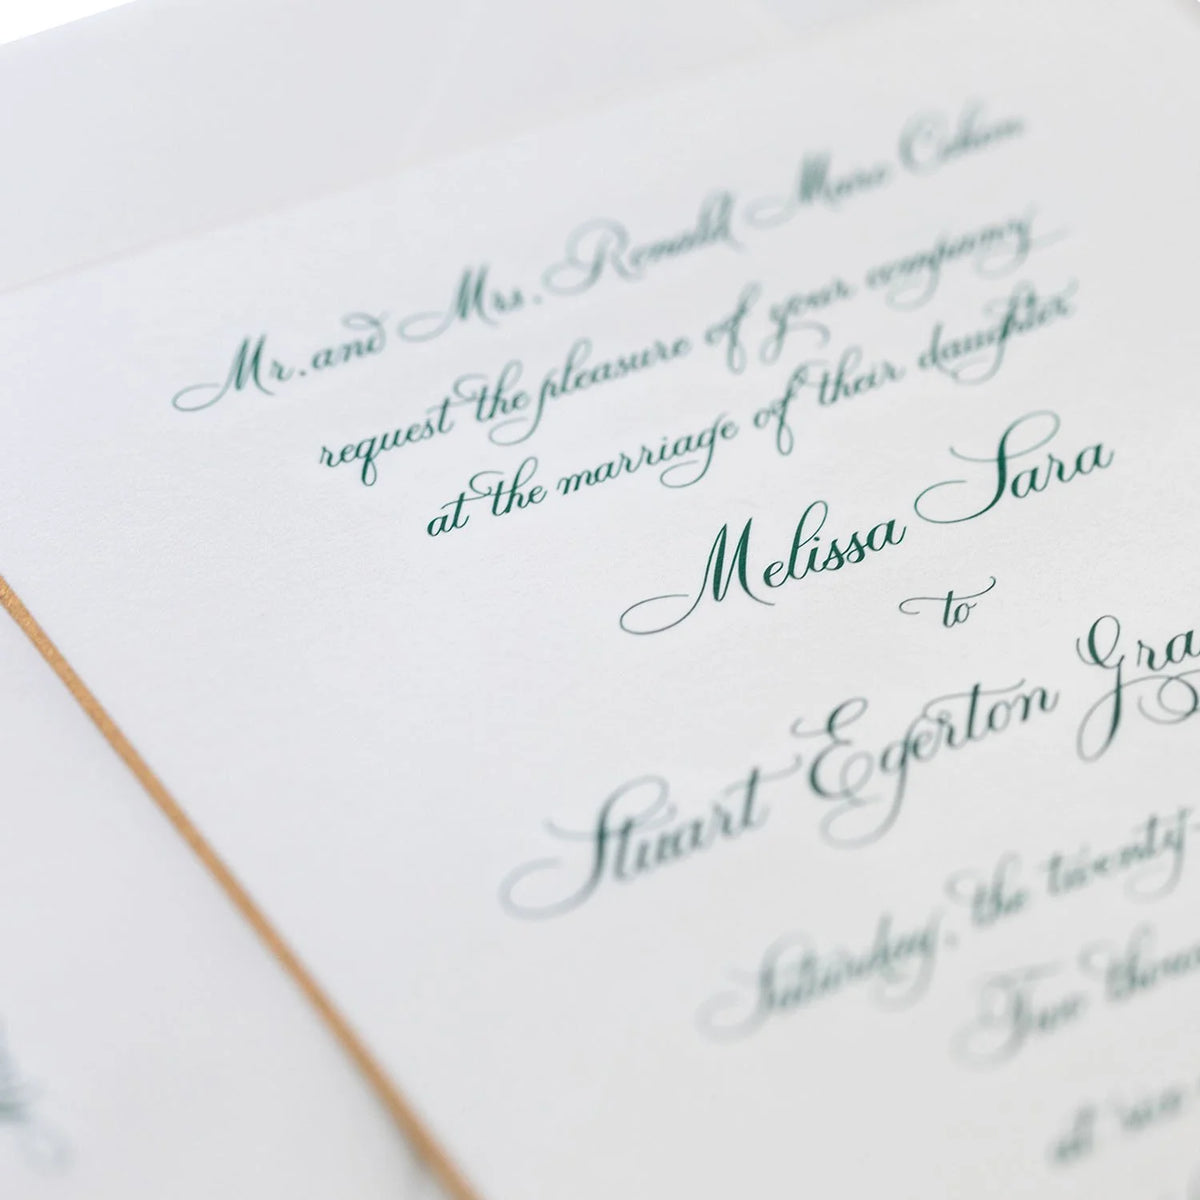 Mr. and Mrs. Ronald Marc Cohen
request the pleasure of your company
at the marriage of their daughter
Melissa Sara
to
Stuart Egerton Gra
Saturday, the twenty
Two thous
at